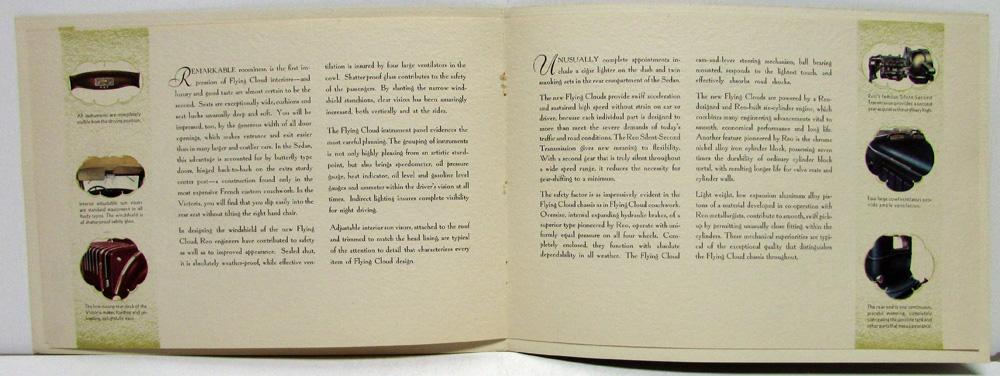 All instruments are completely
visible from the driving position.
Interior adjustable sun visors
are standard equipment in all
body types. The windshield is
of shatterproof safety glass.
The low-swung rear deck of the
Victoria makes loading and
REMARKABLE roominess, is the first im-
pression of Flying Cloud interiors—and
luxury and good taste are almost certain to be the
second. Seats are exceptionally wide, cushions and
seat backs unusually deep and soft. You will be
impressed, too, by the generous width of all door
openings, which makes entrance and exit easier
than in many larger and costlier cars. In the Sedan,
this advantage is accounted for by butterfly type
doors, hinged back-to-back on the extra sturdy
center post—a construction found only in the
most expensive French custom coachwork. In the
Victoria, you will find that you slip easily into the
rear seat without tilting the right hand chair.
In designing the windshield of the new Flying
Cloud, Reo engineers have contributed to safety
as well as to improved appearance. Sealed shut,
it is absolutely weather-proof, while effective ven-
tilation is insured by four large ventilators in the
cowl. Shatterproof glass contributes to the safety
of the passengers. By slanting the narrow wind-
shield stanchions, clear vision has been amazingly
increased, both vertically and at the sides.
The Flying Cloud instrument panel evidences the
most careful planning. The grouping of instruments
is not only highly pleasing from an artistic stand-
point, but also brings speedometer, oil pressure
gauge, heat indicator, oil level and gasoline level
gauges and ammeter within the driver's vision at all
times. Indirect lighting insures complete visibility
for night driving.
Adjustable interior sun visors, attached to the roof
and trimmed to match the head lining, are typical
of the attention to detail that characterizes every
item of Flying Cloud design.
UNUSUALLY complete appointments in-
clude a cigar lighter on the dash and twin
smoking sets in the rear compartment of the Sedan.
The new Flying Clouds provide swift acceleration
and sustained high speed without strain on car or
driver, because each individual part is designed to
more than meet the severe demands of today's
traffic and road conditions. The Reo Silent-Second
Transmission gives new meaning to flexibility.
With a second gear that is truly silent throughout
a wide speed range, it reduces the necessity for
gear-shifting to a minimum.
The safety factor is as impressively evident in the
Flying Cloud chassis as in Flying Cloud coachwork.
Oversize, internal expanding hydraulic brakes, of a
superior type pioneered by Reo, operate with uni-
formly equal pressure on all four wheels. Com-
pletely enclosed, they function with absolute
dependability in all weather. The Flying Cloud
cam-and-lever steering mechanism, ball bearing
mounted, responds to the lightest touch, and
effectively absorbs road shocks.
The new Flying Clouds are powered by a Reo-
designed and Reo-built six-cylinder engine, which
combines many engineering advancements vital to
smooth, economical performance and long life.
Another feature pioneered by Reo is the chrome
nickel alloy iron cylinder block, possessing seven
times the durability of ordinary cylinder block
metal, with resulting longer life for valve seats and
cylinder walls.
Light weight, low expansion aluminum alloy pis-
tons of a material developed in co-operation with
Reo metallurgists, contribute to smooth, swift pick-
up by permitting unusually close fitting within the
cylinders. These mechanical superiorities are typi-
cal of the exceptional quality that distinguishes
the Flying Cloud chassis throughout.
Reo's famous Silent-Second
Transmission provides a second
gear as quiet as ordinary high.
Four large cowl ventilators pro-
vide ample ventilation.
The rear end is one continuous,
graceful sweeping, completely
concealing the gasoline tank and
other parts that mar appearance.